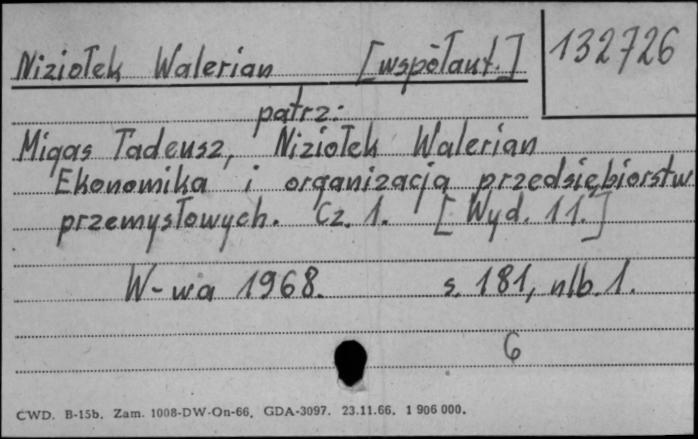 Niziołek Walerian [współaut.] 132726
patrz:
Migas Tadeusz, Niziołek Walerian
Ekonomika i organizacja przedsiębiorstw
przemysłowych. Cz. 1. [Wyd. 11.]
W-wa 1968. s. 181, nlb. 1.
6
CWD. B-15b. Zam. 1008-DW-On-66. GDA-3097. 23.11.66. 1 906 000.